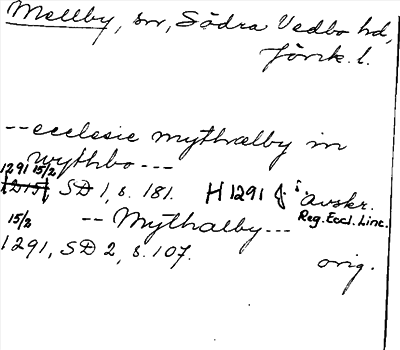 Mellby, sn, Södra Vedbo hd,
Jönk. l.
--ecclesie mythælby in
wythbo---
1291 15/2
1215 SD 1, s. 181. H 1291 i avskr.
Reg. Eccl. Linc.
15/2 -- Mythalby---
1291, SD 2, s. 107. orig.